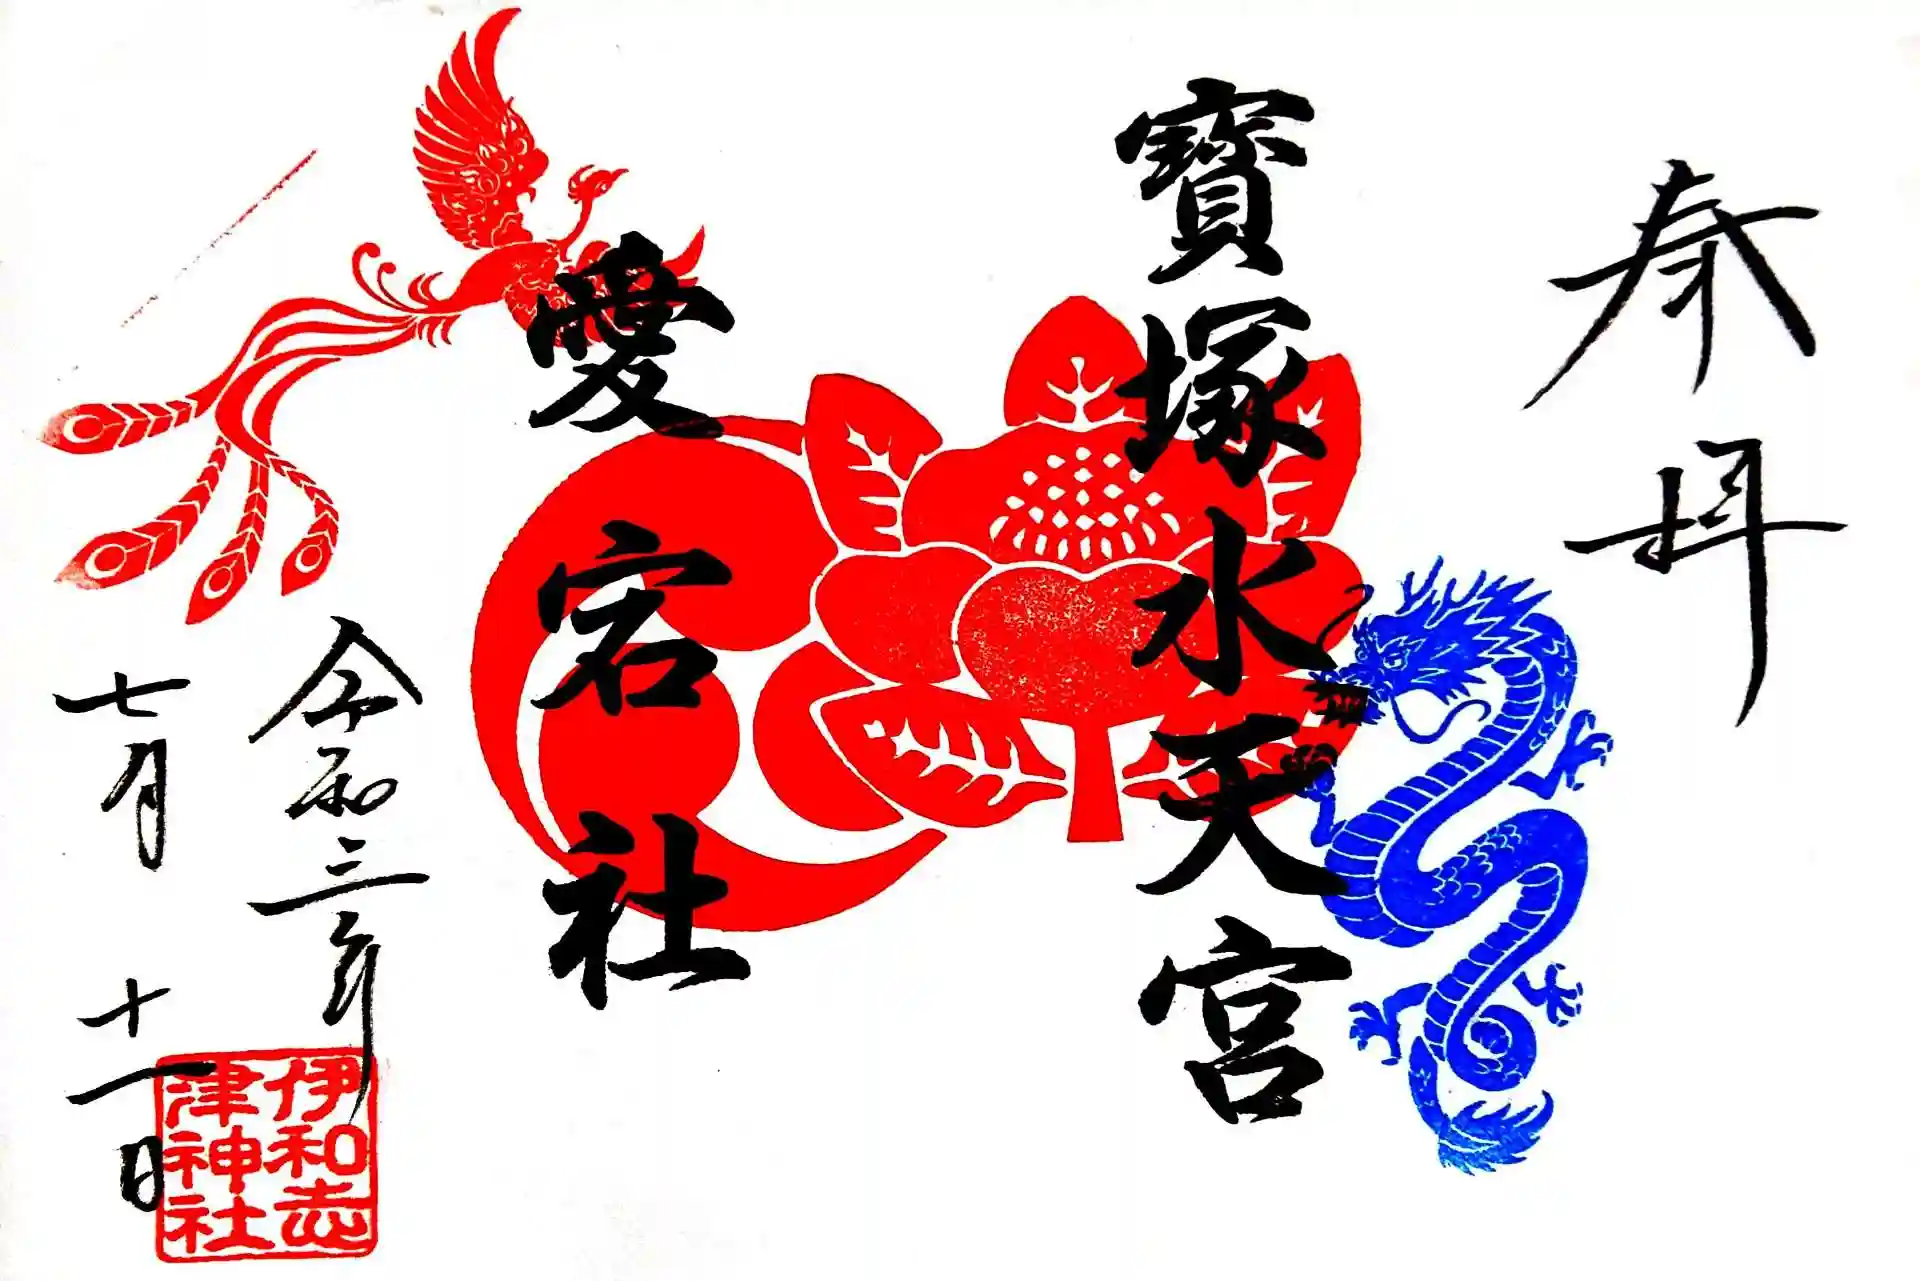 奉拝
寶塚水天宮
愛宕社
令和三年
七月十一日
伊和志
津神社